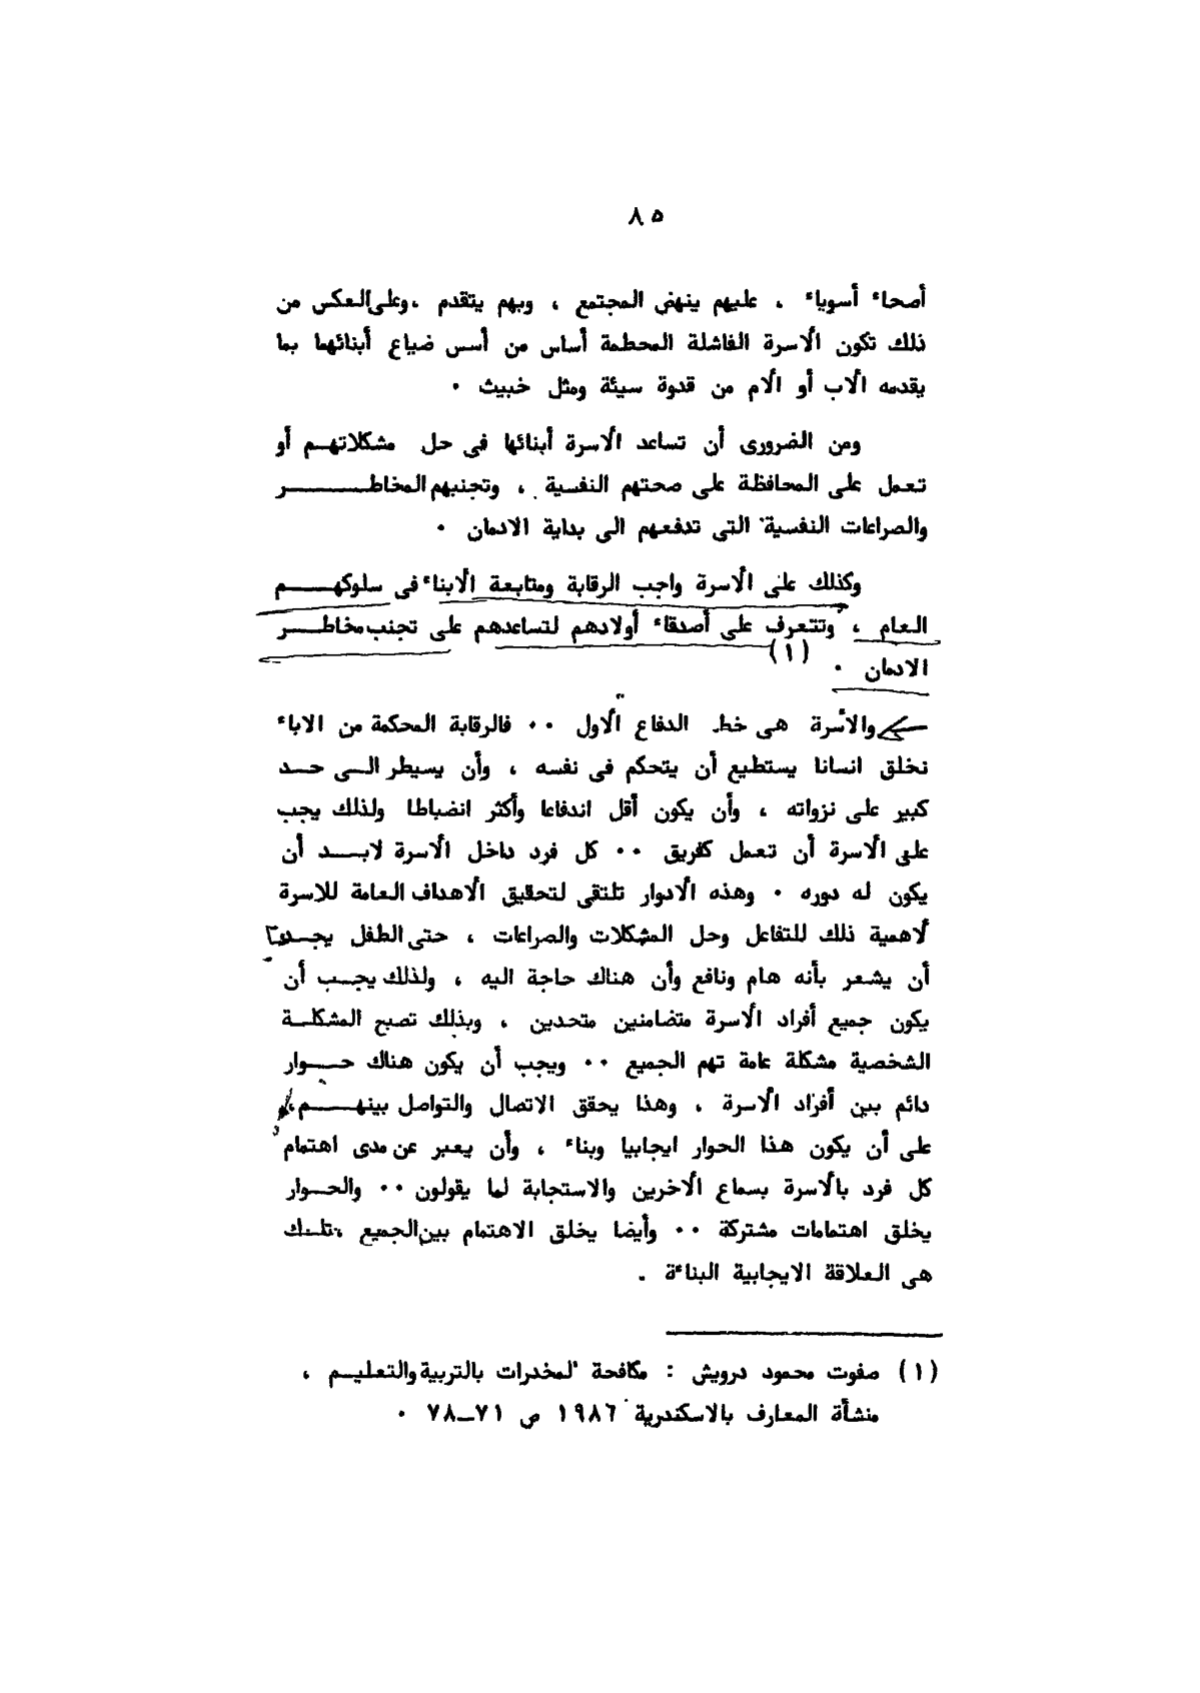 ٨٥
أصحاء أسوياء ، عليهم ينهض المجتمع ، وبهم يتقدم ،وعلى العكس من
ذلك تكون الأسرة الفاشلة المحطمة أساس من أسس ضياع أبنائهما بما
يقدمه الأب أو الأم من قدوة سيئة ومثل خبيث ٠
ومن الضرورى أن تساعد الأسرة أبنائها فى حل مشكلاتهم أو
تعمل على المحافظة على صحتهم النفسية ، وتجنبهم المخاطر
والصراعات النفسية التى تدفعهم الى بداية الادمان ٠
وكذلك على الأسرة واجب الرقابة ومتابعة الأبناء فى سلوكهم
العام ، وتتعرف على أصدقاء أولادهم لتساعدهم على تجنب مخاطر
الادمان ٠ (١)
والأسرة هى خط الدفاع الأول ٠٠ فالرقابة المحكمة من الاباء
نخلق انسانا يستطيع أن يتحكم فى نفسه ، وأن يسيطر الى حد
كبير على نزواته ، وأن يكون أقل اندفاعا وأكثر انضباطا ولذلك يجب
على الأسرة أن تعمل كفريق ٠٠ كل فرد داخل الأسرة لابد أن
يكون له دوره ٠ وهذه الادوار تلتقى لتحقيق الأهداف العامة للاسرة
لأهمية ذلك للتفاعل وحل المشكلات والصراعات ، حتى الطفل يجب
أن يشعر بأنه هام ونافع وأن هناك حاجة اليه ، ولذلك يجب أن
يكون جميع أفراد الأسرة متضامنين متحدين ، وبذلك تصبح المشكلة
الشخصية مشكلة عامة تهم الجميع ٠٠ ويجب أن يكون هناك حوار
دائم بين أفراد الأسرة ، وهذا يحقق الاتصال والتواصل بينهم ،
على أن يكون هذا الحوار ايجابيا وبناء ، وأن يعبر عن مدى اهتمام
كل فرد بالأسرة بسماع الأخرين والاستجابة لما يقولون ٠٠ والحوار
يخلق اهتمامات مشتركة ٠٠ وأيضا يخلق الاهتمام بين الجميع ، تلك
هى العلاقة الايجابية البناءة .
(١) صفوت محمود درويش : مكافحة المخدرات بالتربية والتعليم ،
منشأة المعارف بالاسكندرية ١٩٨٦ ص ٧١ــ٧٨ ٠